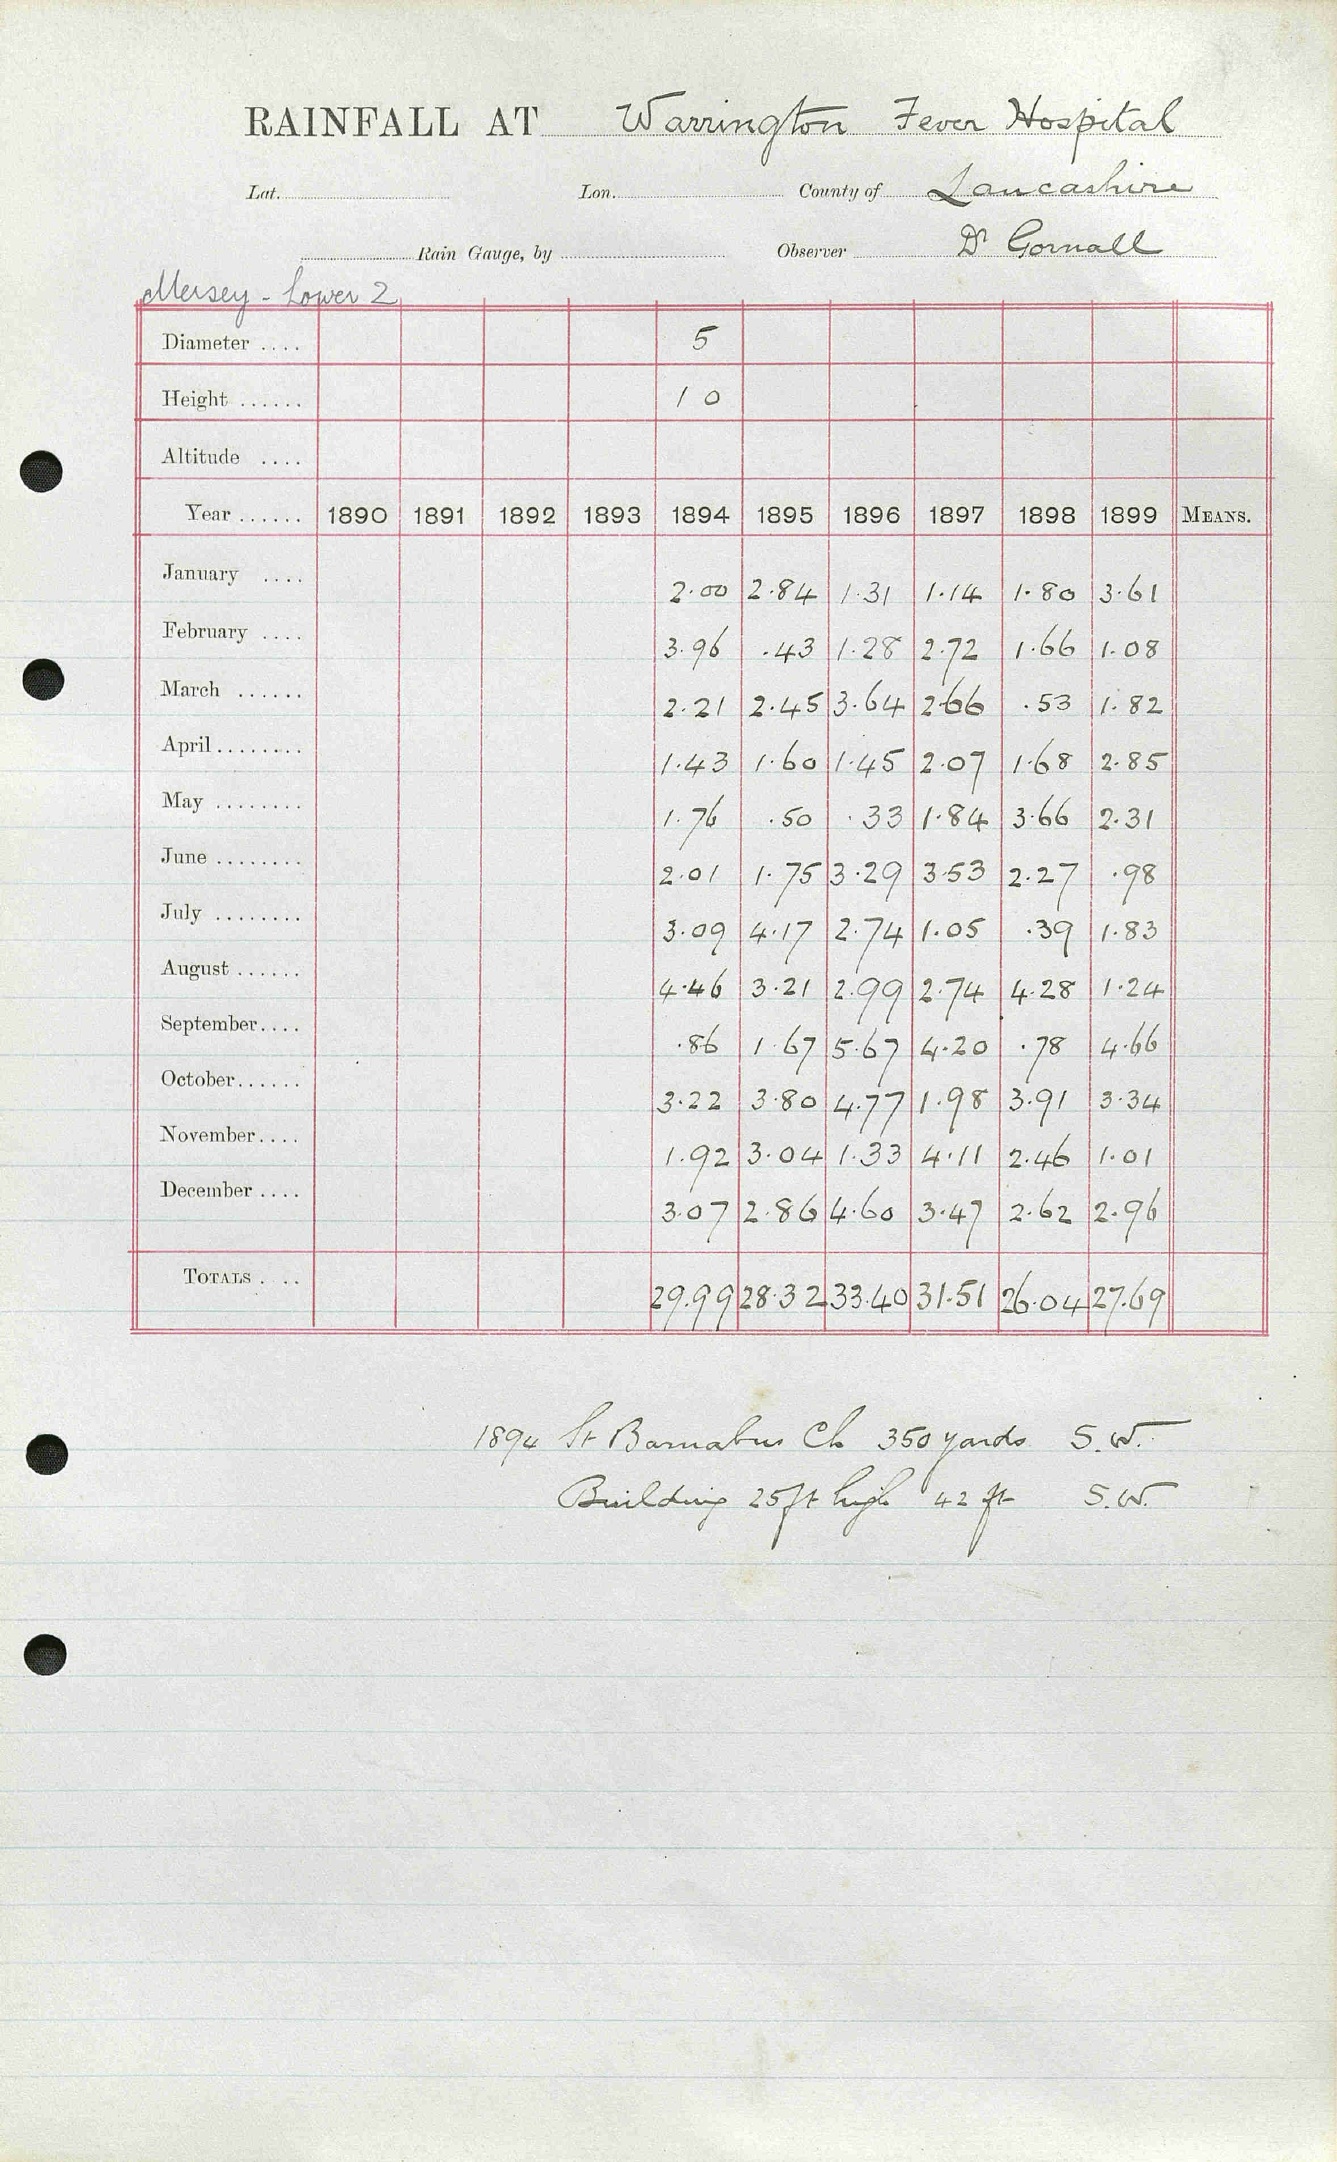 RAINFALL AT Warrington Fever Hospital
Lat. Lon. County of Lancashire
Rain Gauge, by Observer Dr Gornall
Mersey - Lower 2
Diameter .... 5
Height ...... 1 0
Altitude ....
Year ...... 1890 1891 1892 1893 1894 1895 1896 1897 1898 1899 MEANS.
January .... 2.00 2.84 1.31 1.14 1.80 3.61
February .... 3.96 .43 1.28 2.72 1.66 1.08
March ...... 2.21 2.45 3.64 2.66 .53 1.82
April ........ 1.43 1.60 1.45 2.07 1.68 2.85
May ........ 1.76 .50 .33 1.84 3.66 2.31
June ........ 2.01 1.75 3.29 3.53 2.27 .98
July ........ 3.09 4.17 2.74 1.05 .39 1.83
August ...... 4.46 3.21 2.99 2.74 4.28 1.24
September.... .86 1.67 5.67 4.20 .78 4.66
October...... 3.22 3.80 4.77 1.98 3.91 3.34
November.... 1.92 3.04 1.33 4.11 2.46 1.01
December .... 3.07 2.86 4.60 3.47 2.62 2.96
TOTALS . .. 29.99 28.32 33.40 31.51 26.04 27.69
1894 St Barnabus Ch 350 yards S.W.
Building 25ft high 42 ft S.W.